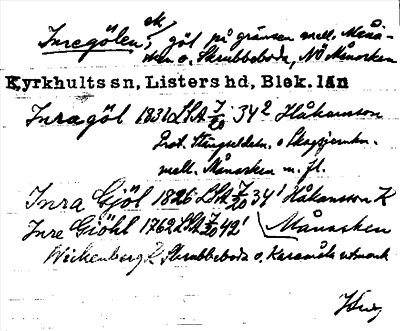 Inregölen, ek, göl på gränsen mell. Måna-
sken o. Skrubbeboda, NÖ Månasken
Kyrkhults sn, Listers hd, Blek. län
Inragöl 1831 LSA 7/20 34² Håkansson
Prot. o
mell. Månasken m. fl.
Inra Gjöl 1826 LSA 7/20 34¹ Håkansson K
Inre Giöhl 1762 LSA 7/20 42¹ Månasken
Wickenberg K Skrubbeboda o. utmark